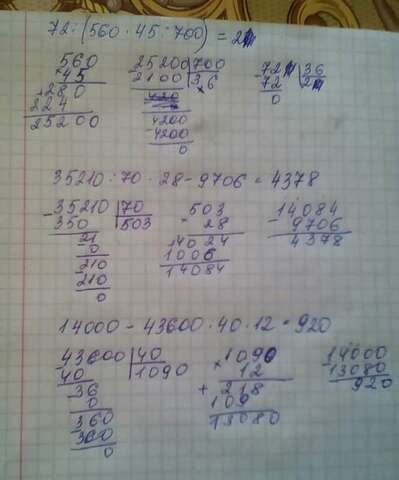 72:(560·45:700)=2
560 25200|700 72|36
×45 2100 |36 72|2
+280 4200 0
224 4200
25200 0
35210:70·28-9706=4378
-35210|70 503 14084
350 |503 28 -9706
21 4024 4378
0 1006
210 14084
210
0
14000-43600:40·12=920
-43600|40 ×1090 -14000
40 |1090 12 13080
36 +218 920
0 109
360 13080
360
0